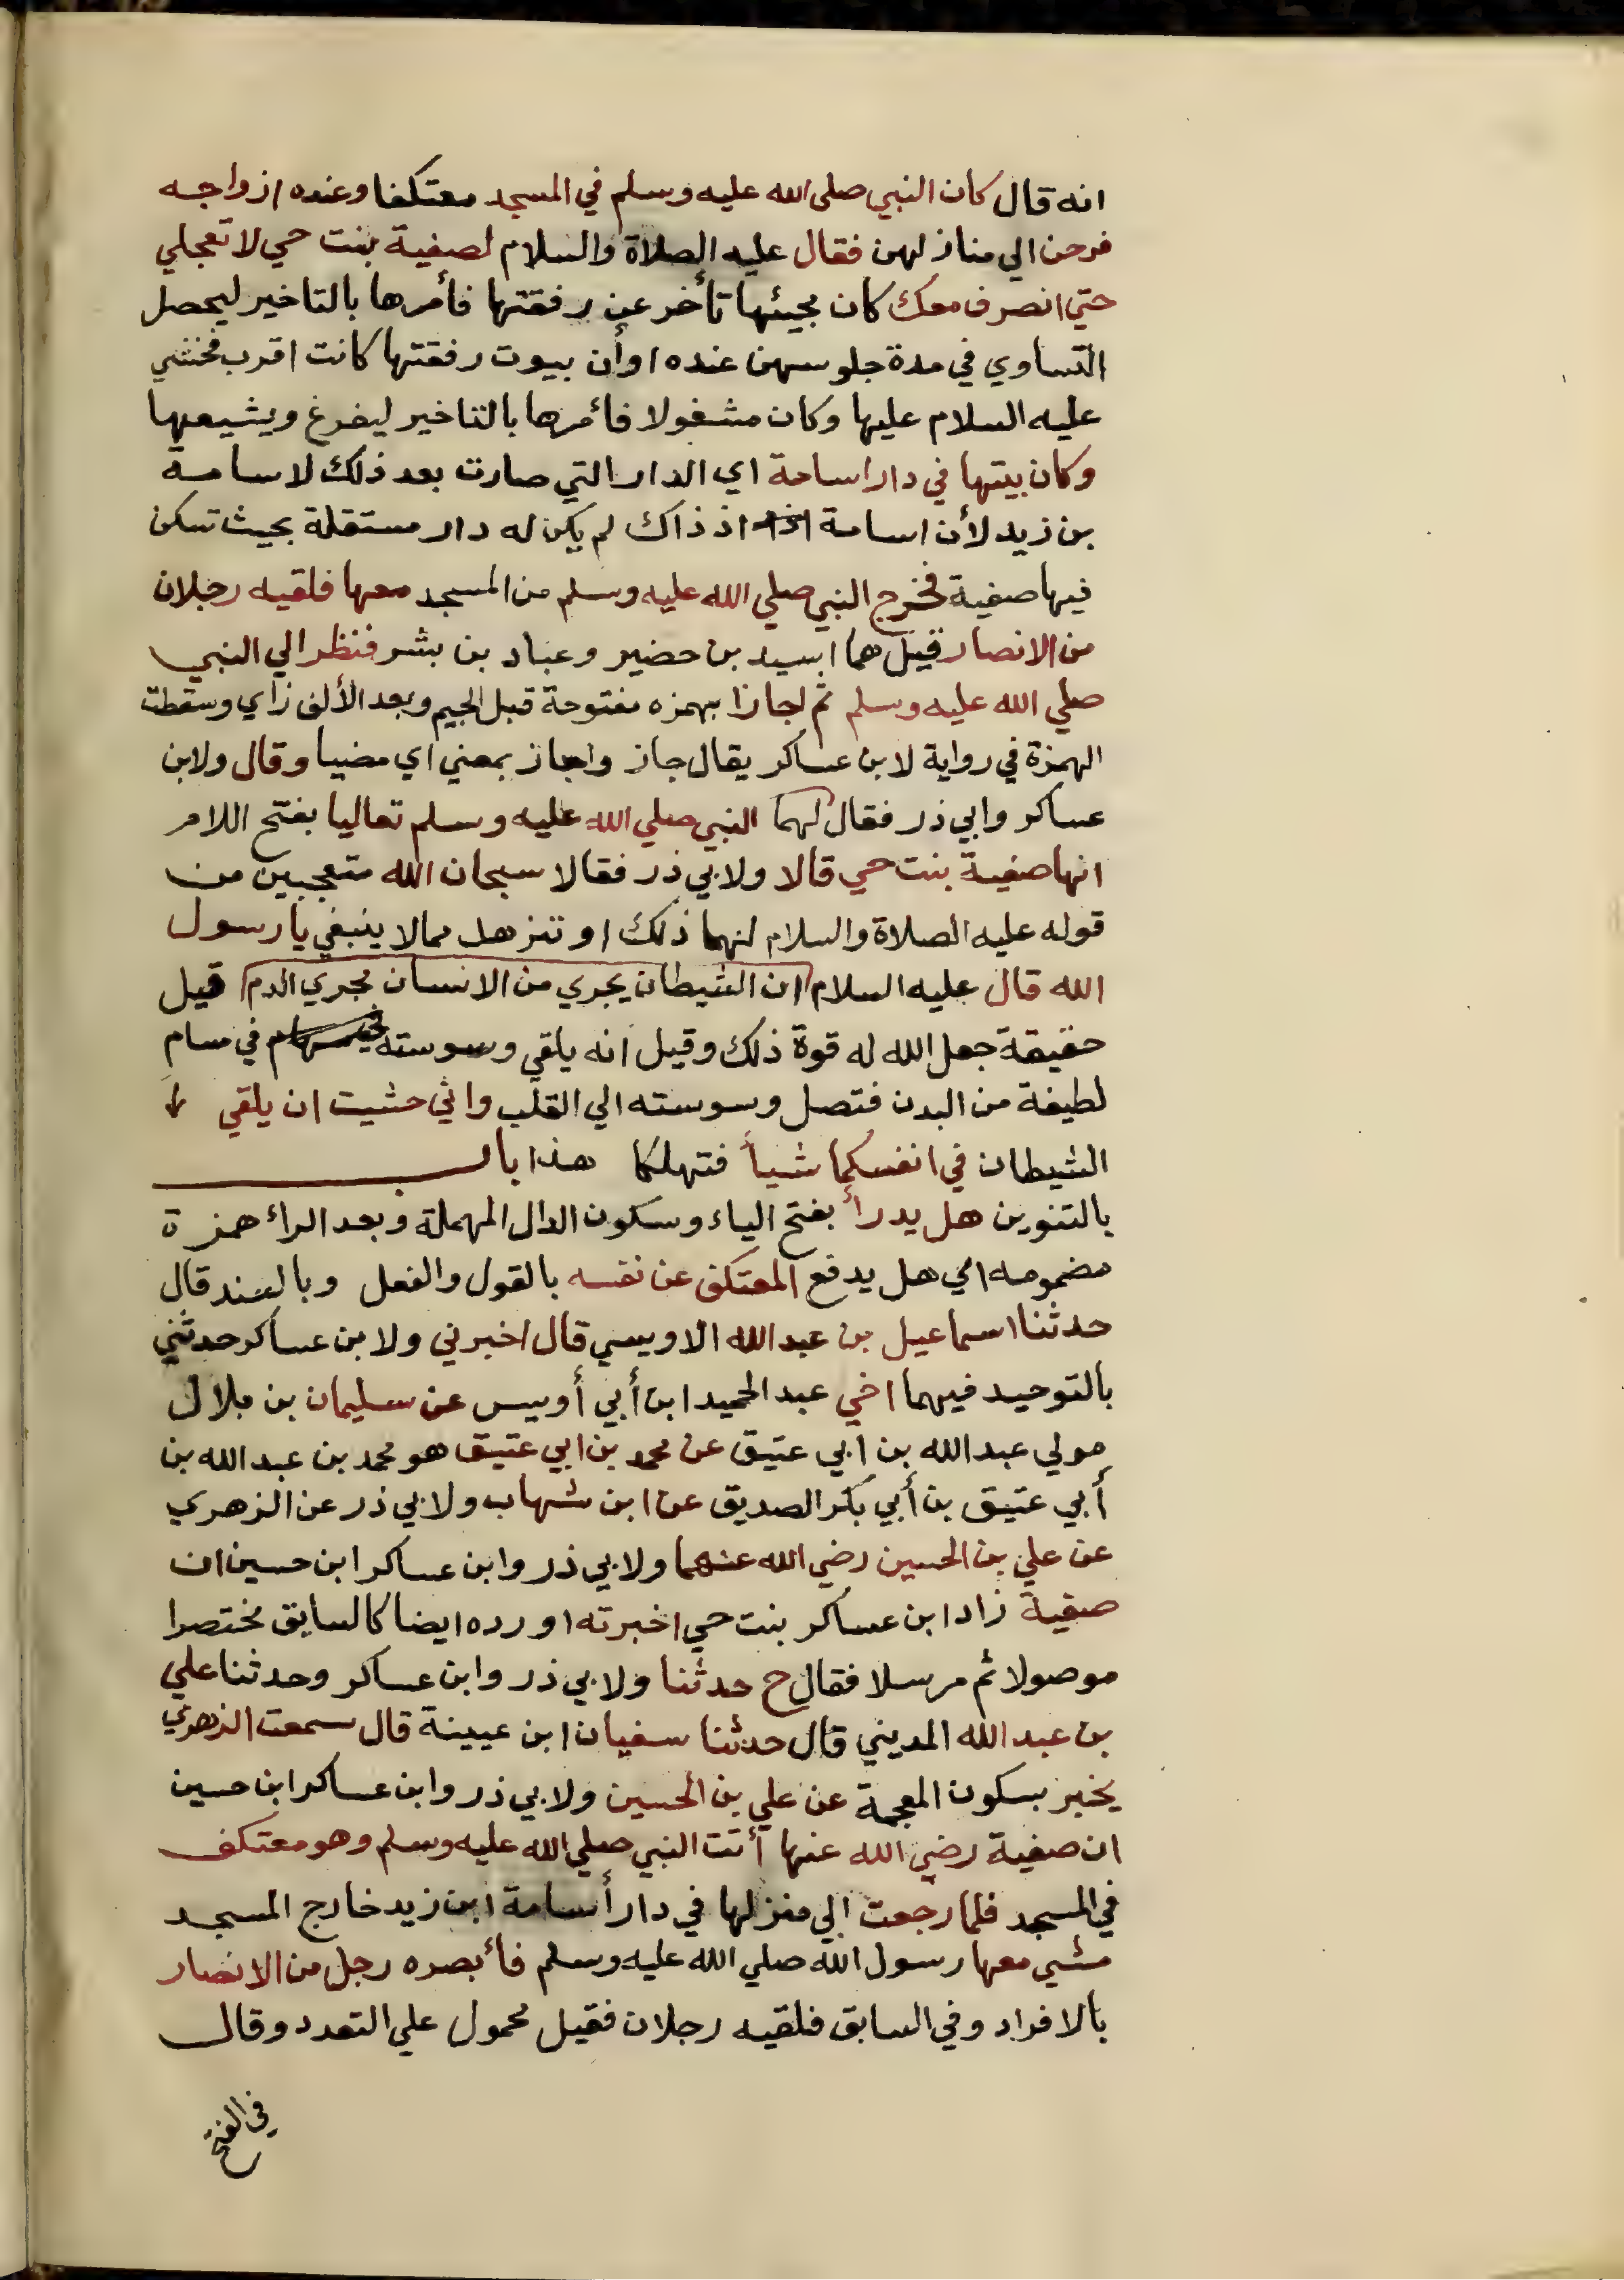 انه قال كان النبي صلى الله عليه وسلم في المسجد معتكفا وعنده ازواجه
فرحن الي منازلهن فقال عليه الصلاة والسلام لصفية بنت حي لا تعجلي
حتي انصرف معك كان مجيئها تأخر عن رفقتها فأمرها بالتاخير ليحصل
التساوي في مدة جلوسهن عنده اوأن بيوت رفقتها كانت اقرب فخشي
عليه السلام عليها وكان مشغولا فأمرها بالتاخير ليفرغ ويشيعها
وكان بيتها في دار اسامة اي الدار التي صارت بعد ذلك لاسامة
بن زيد لأن اسامة اذ ذاك لم يكن له دار مستقلة بحيث تسكن
فيها صفية فخرج النبي صلي الله عليه وسلم من المسجد معها فلقيه رجلان
من الانصار قيل هما اسيد بن حضير وعباد بن بشر فنظر الي النبي
صلي الله عليه وسلم ثم اجازا بهمزه مفتوحة قبل الجيم وبعد الألف زاي وسقطت
الهمزة في رواية لابن عساكر يقال جاز واجاز بمعني اي مضيا وقال ولابن
عساكر وابي ذر فقال لهما النبي صلي الله عليه وسلم تعاليا بفتح اللام
انها صفية بنت حي قالا ولابي ذر فقالا سبحان الله متعجبين من
قوله عليه الصلاة والسلام لهما ذلك او تنزهل ممالا ينبغي يا رسول
الله قال عليه السلام ان الشيطان يجري من الانسان مجري الدم قيل
حقيقة جعل الله له قوة ذلك وقيل انه يلقي وسوسته في مسام
لطيفة من البدن فتصل وسوسته الي القلب واني خشيت ان يلقي
الشيطان في انفسكما شيأ فتهلكا هذا باب
بالتنوين هل يدرأ بفتح الياء وسكون الدال المهملة وبعد الراء همزة
مضمومه اي هل يدفع المعتكف عن نفسه بالقول والفعل وبالسند قال
حدثنا اسماعيل بن عبد الله الاويسي قال اخبرني ولابن عساكر حدثني
بالتوحيد فيهما اخي عبد الحميد ابن أبي أويس عن سليمان بن بلال
مولي عبد الله بن ابي عتيق عن محمد بن ابي عتيق هو محمد بن عبد الله بن
أبي عتيق بن أبي بكر الصديق عن ابن شهاب ولابي ذر عن الزهري
عن علي بن الحسين رضي الله عنهما ولابي ذر وابن عساكر ابن حسين ان
صفية زاد ابن عساكر بنت حي اخبرته اورده ايضا كالسابق مختصرا
موصولا ثم مرسلا فقال ح حدثنا ولابي ذر وابن عساكر وحدثنا علي
بن عبد الله المديني قال حدثنا سفيان ابن عيينة قال سمعت الزهري
يخبر بسكون المعجمة عن علي بن الحسين ولابي ذر وابن عساكر ابن حسين
ان صفية رضي الله عنها أتت النبي صلي الله عليه وسلم وهو معتكف
في المسجد فلما رجعت الي منزلها في دار أسامة ابن زيد خارج المسجد
مشي معها رسول الله صلي الله عليه وسلم فأبصره رجل من الانصار
بالافراد وفي السابق فلقيه رجلان فقيل محمول علي التعدد وقال
في الفتح